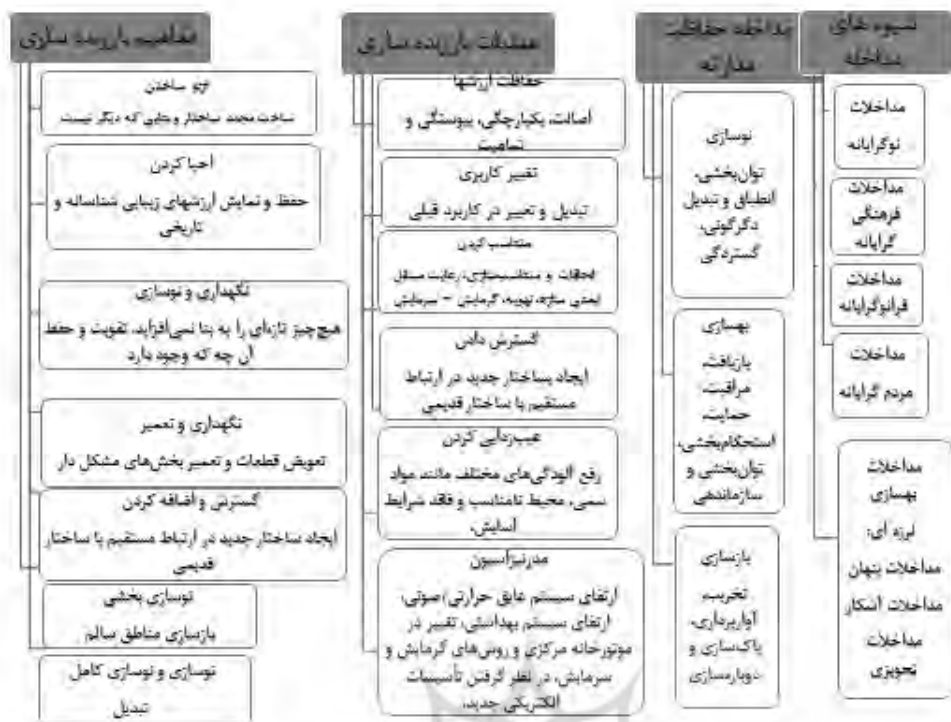 شیوه های
مداخله
مداخلات
نوگرایانه
مداخلات
فرهنگی
گرایانه
مداخلات
فرانوگرایانه
مداخلات
مردم گرایانه
مداخلات
بهسازی
لرزه ای:
مداخلات پنهان
مداخلات آشکار
مداخلات
تجویزی
مداخله حفاظت
مدارانه
نوسازی
توان‌بخشی،
انطباق و تبدیل
دگرگونی،
گستردگی
بهسازی
بازیافت،
مراقبت،
حمایت،
استحکام‌بخشی،
توان‌بخشی و
سازماندهی
بازسازی
تخریب،
آواربرداری،
پاک‌سازی و
دوباره‌سازی
عملیات باززنده سازی
حفاظت ارزشها
اصالت، یکپارچگی، پیوستگی و
تمامیت
تغییر کاربری
تبدیل و تغییر در کاربرد قبلی
متناسب کردن
الحاقات و متناسب‌سازی، رعایت مسائل
ایمنی سازه، تهویه، گرمایش – سرمایش
گسترش دادن
ایجاد ساختار جدید در ارتباط
مستقیم با ساختار قدیمی
عیب‌زدایی کردن
رفع آلودگی‌های مختلف مانند مواد
سمی، محیط نامناسب و فاقد شرایط
آسایش.
مدرنیزاسیون
ارتقای سیستم عایق حرارتی/صوتی،
ارتقای سیستم بهداشتی، تغییر در
موتورخانه مرکزی و روش‌های گرمایش و
سرمایش، در نظر گرفتن تأسیسات
الکتریکی جدید.
مفاهیم باززنده سازی
ازنو ساختن
ساخت مجدد ساختار و بنایی که دیگر نیست.
احیا کردن
حفظ و نمایش ارزشهای زیبایی شناسانه و
تاریخی
نگهداری و نوسازی
هیچ‌چیز تازه‌ای را به بنا نمی‌افزاید، تقویت و حفظ
آن چه که وجود دارد
نگهداری و تعمیر
تعویض قطعات و تعمیر بخش‌های مشکل دار
گسترش و اضافه کردن
ایجاد ساختار جدید در ارتباط مستقیم با ساختار
قدیمی
نوسازی بخشی
بازسازی مناطق سالم
نوسازی و نوسازی کامل
تبدیل